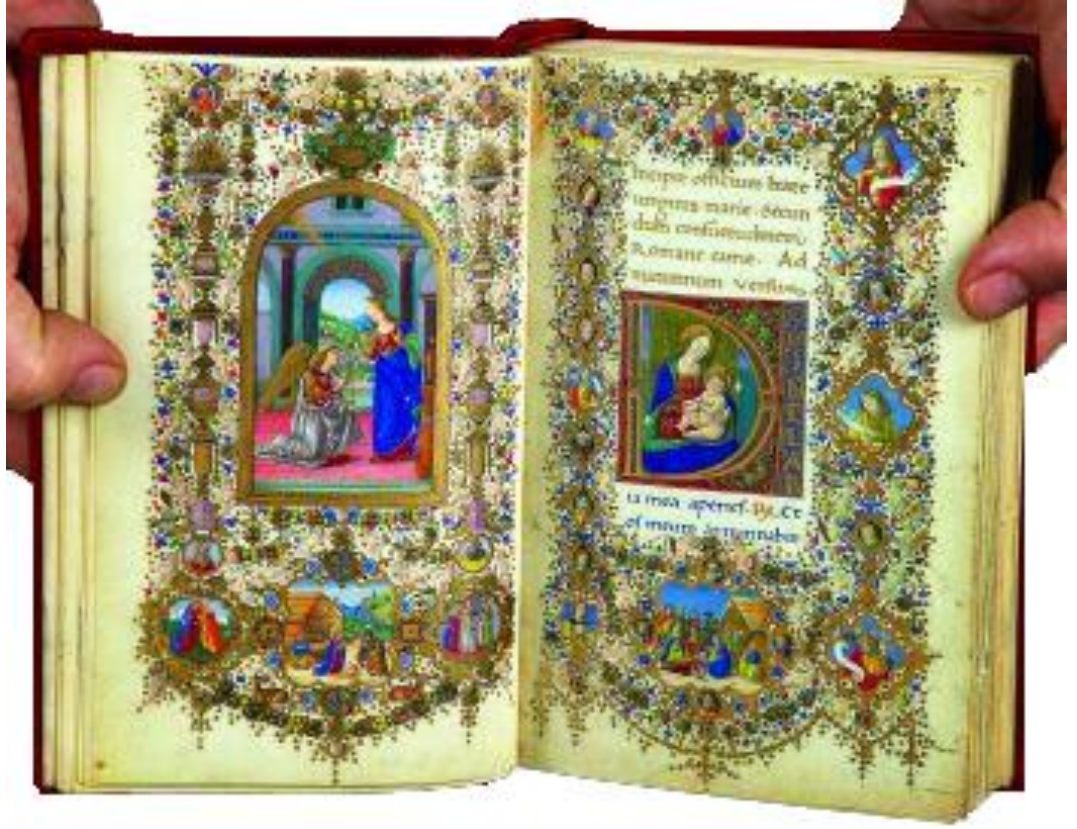 Incipit officium beate
virginis marie secun
dum consuetudinem
Romane curie. Ad
matutinum versus.
D
ia mea aperies. Ry. Et
os meum annuntiabit